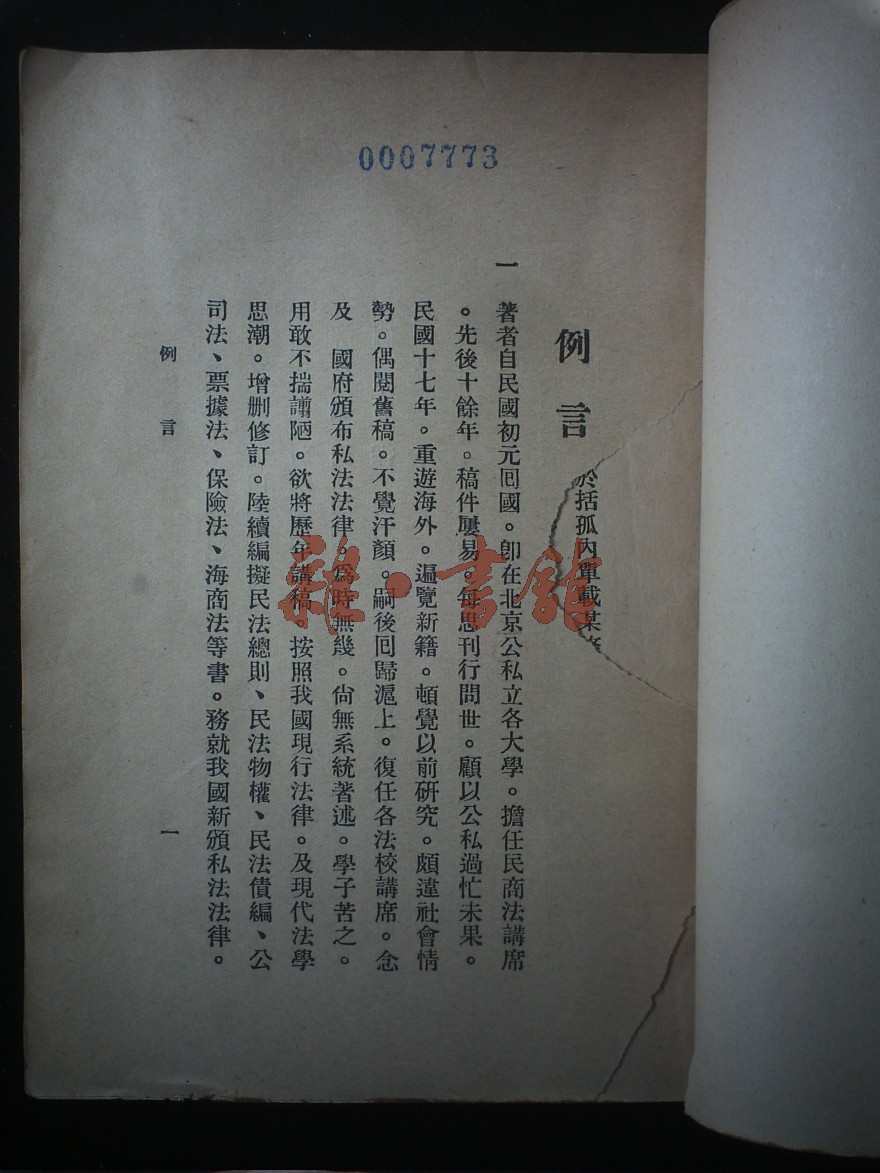 0007773
於括孤內單載某
例言
一 著者自民國初元囘國。卽在北京公私立各大學。擔任民商法講席
。先後十餘年。稿件屢易。每思刊行問世。顧以公私過忙未果。
民國十七年。重遊海外。遍覽新籍。頓覺以前硏究。頗違社會情
勢。偶閱舊稿。不覺汗顏。嗣後囘歸滬上。復任各法校講席。念
及　國府頒布私法法律。爲時無幾。尙無系統著述。學子苦之。
用敢不揣譾陋。欲將歷年講稿。按照我國現行法律。及現代法學
思潮。增刪修訂。陸續編擬民法總則、民法物權、民法債編、公
司法、票據法、保險法、海商法等書。務就我國新頒私法法律。
例言 一
雜·書館